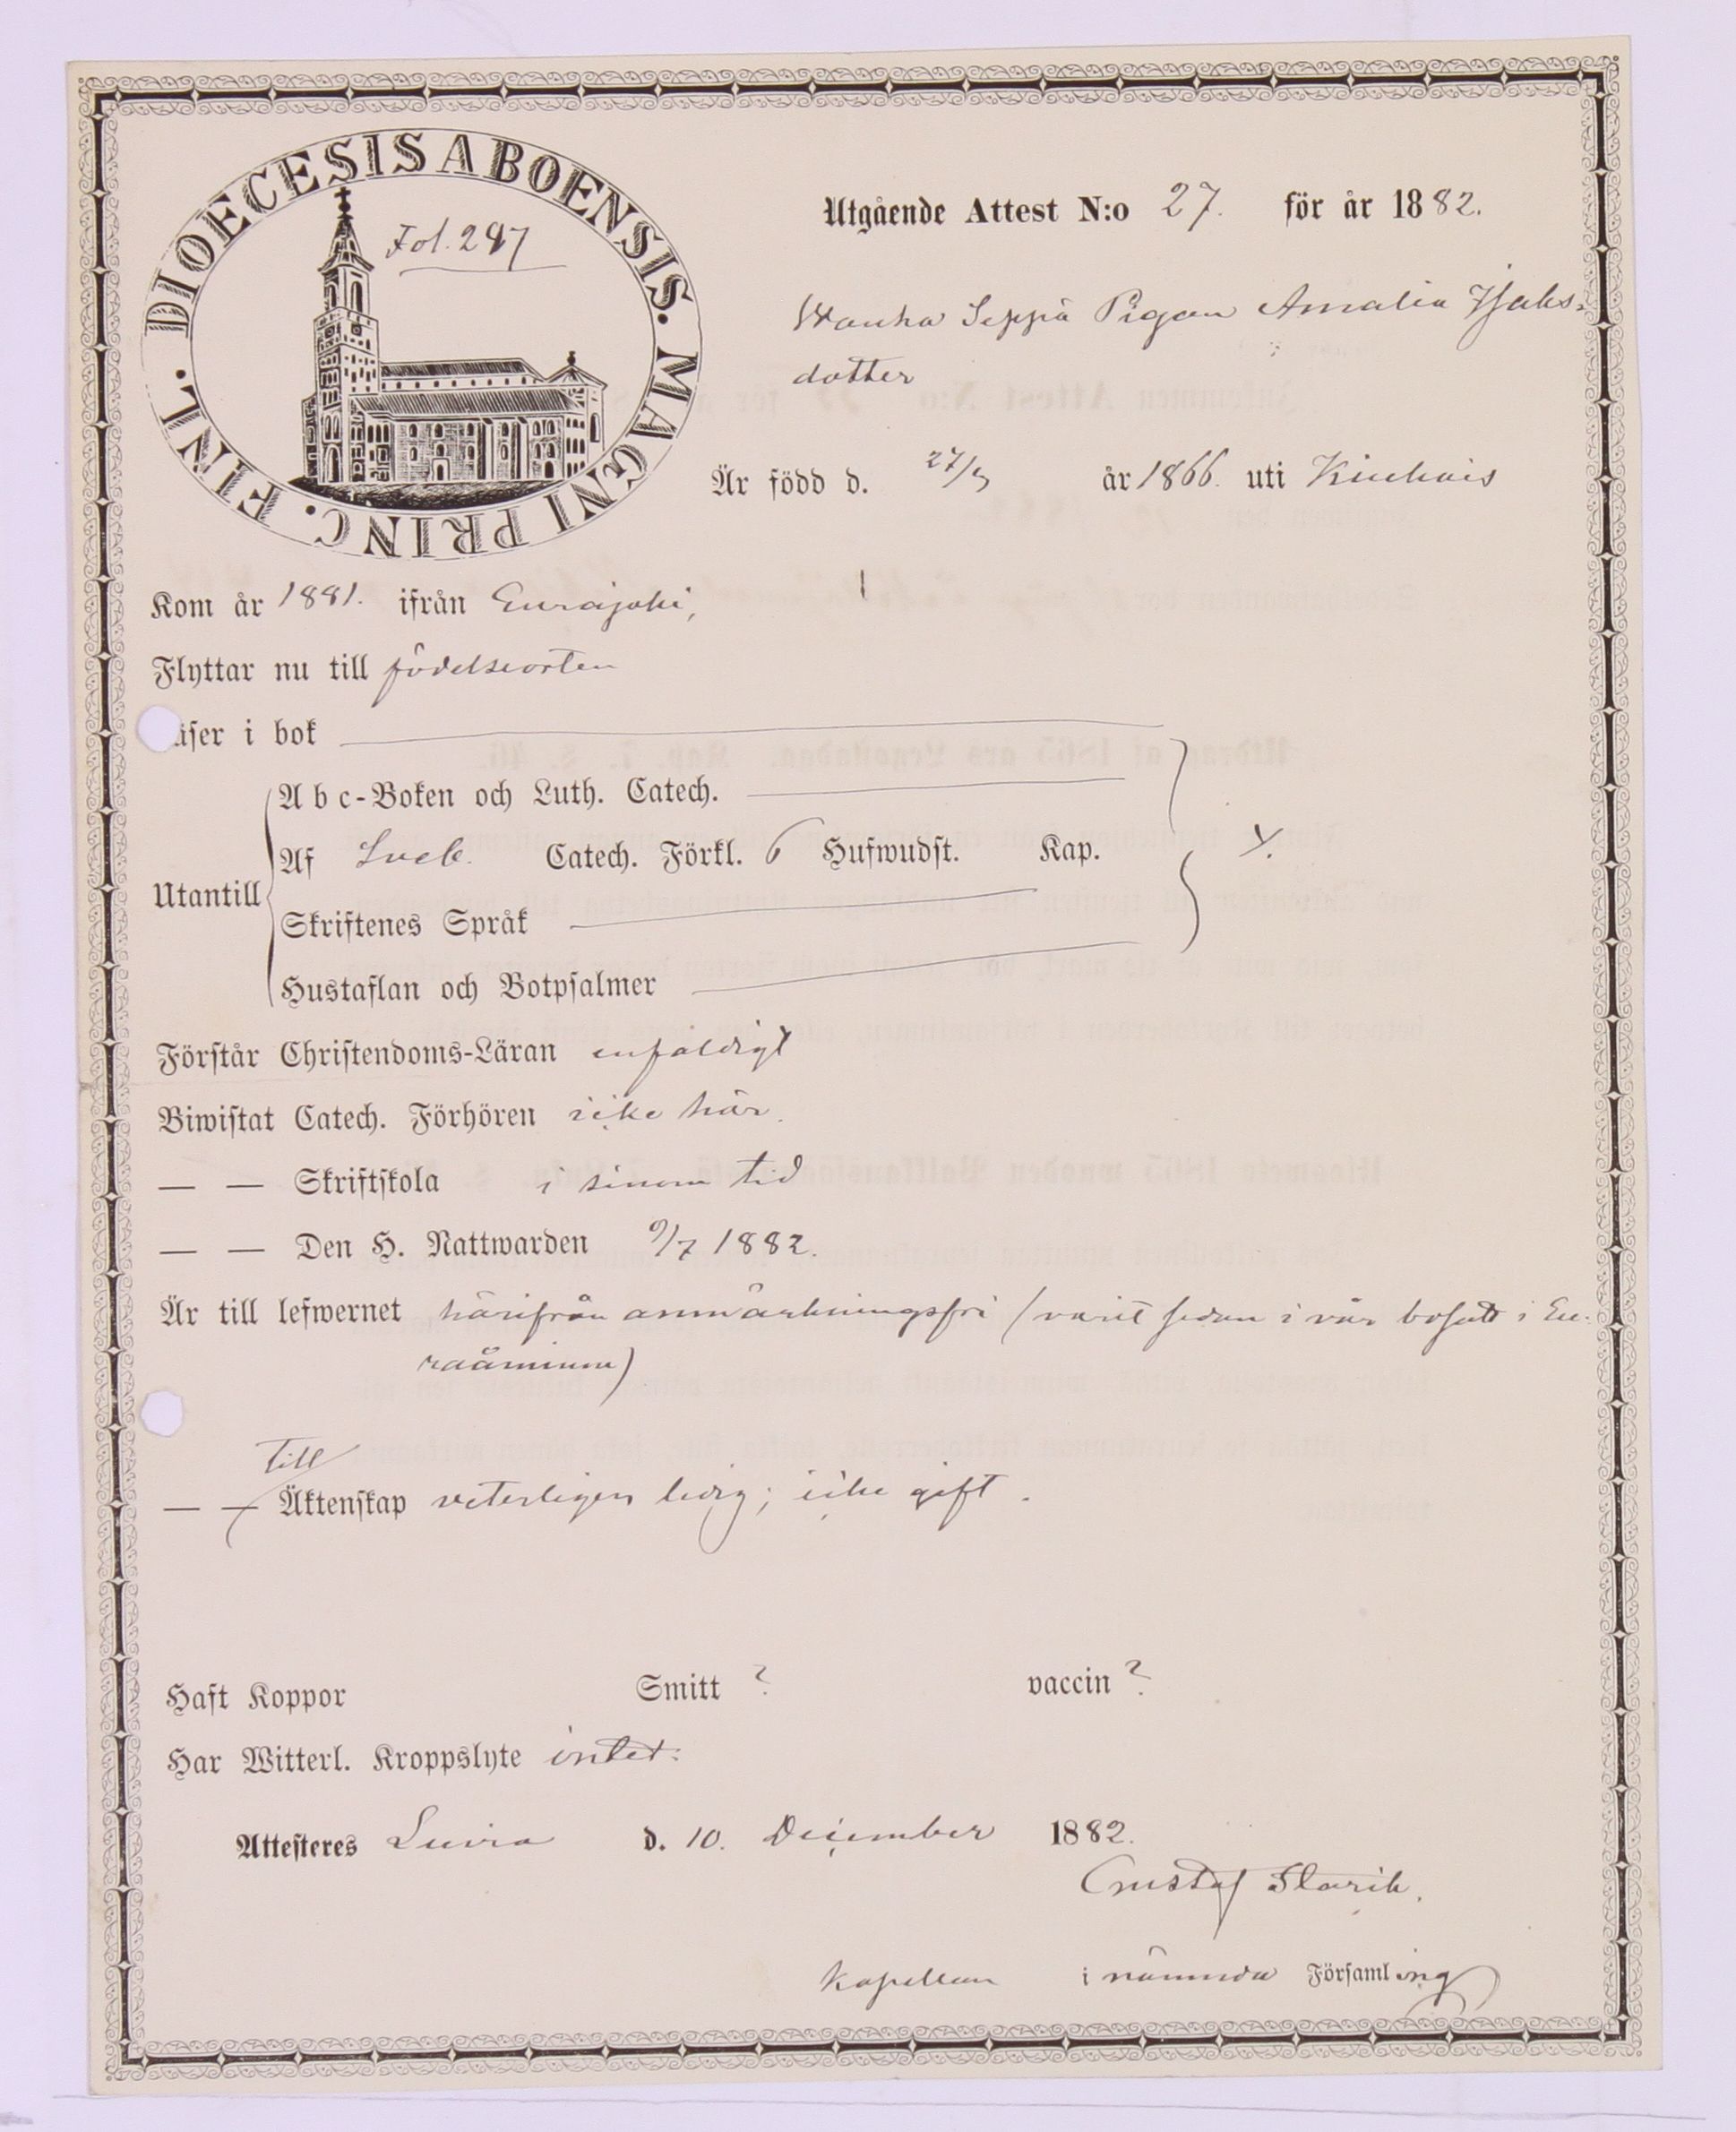 DIOECESIS ABOENSIS. MAGNI PRINC. FINL.
Fol. 297
Utgående Attest N:o 27. för år 1882.
Wanha Seppä Pigan Amalia Isaks-
dotter
Är född d. 27/5 år 1866. uti Kiukais
Kom år 1881. ifrån Eurajoki,
Flyttar nu till födelseorten
äser i bok
Utantill
Abc-Boken och Luth. Catech.
Af Sveb. Catech. Förkl. 6 Hufwudst. Kap.
Skriftenes Språk
Hustaflan och Botpsalmer
Förstår Christendoms-Läran enfaldigt
Biwistat Catech. Förhören icke här.
— — Skriftskola i sinom tid
— — Den H. Nattwarden 9/7 1882.
Är till lefwernet härifrån anmärkningsfri (varit sedan i vår bosatt i Eu-
raåminne)
till
— — Äktenskap veterligen ledig; icke gift.
Haft Koppor Smitt ? vaccin ?
Har Witterl. Kroppslyte intet.
Attesteres Luvia d. 10. December 1882.
Gustaf Starik.
Kapellan i nämnda Församling